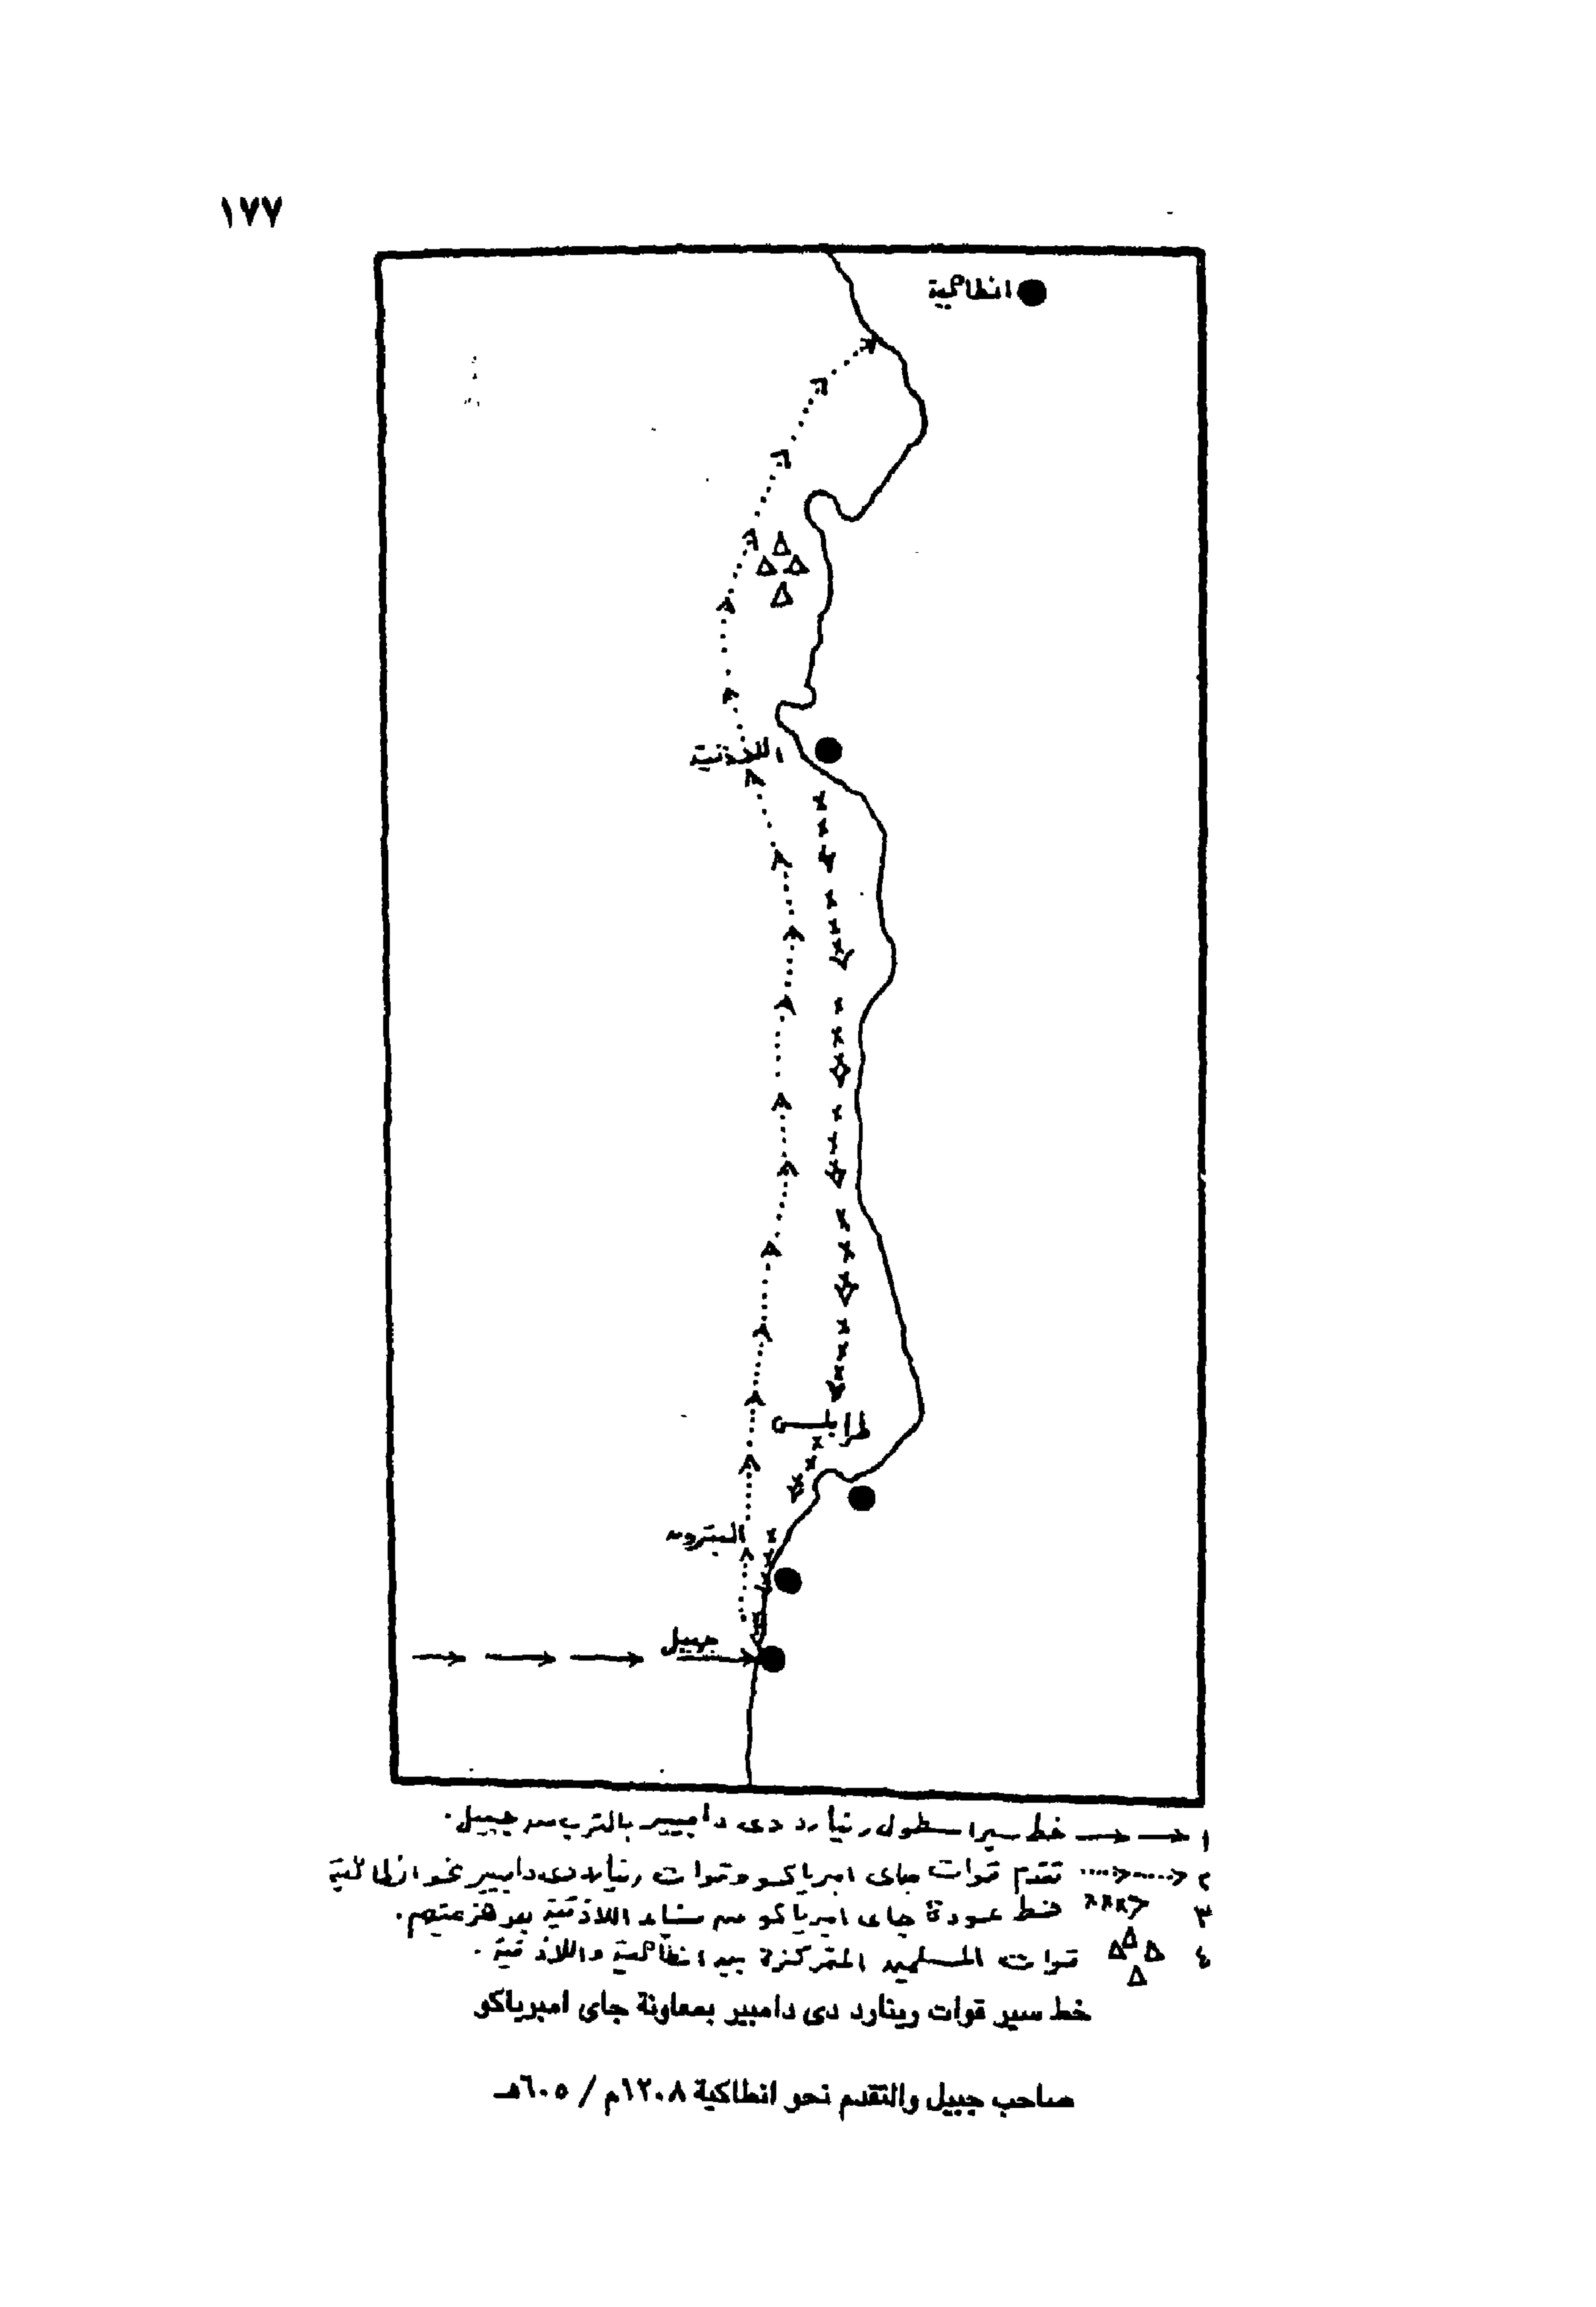 ١٧٧
انطاكية
اللاذقية
طرابلس
البترون
جبيل
١ خط سير اسطول رينارد دى دامبير بالقرب من جبيل.
٢ تقدم قوات جاى امبرياكو وقوات رينارد دى دامبير نحو انطاكية
٣ خط عودة جاى امبرياكو من ميناء اللاذقية بعد هزيمتهم.
٤ قوات المسلمين المتمركزة بين انطاكية واللاذقية.
خط سير قوات رينارد دى دامبير بمعاونة جاى امبرياكو
صاحب جبيل والتقدم نحو انطاكية ١٢٠٨م / ٦٠٥هـ